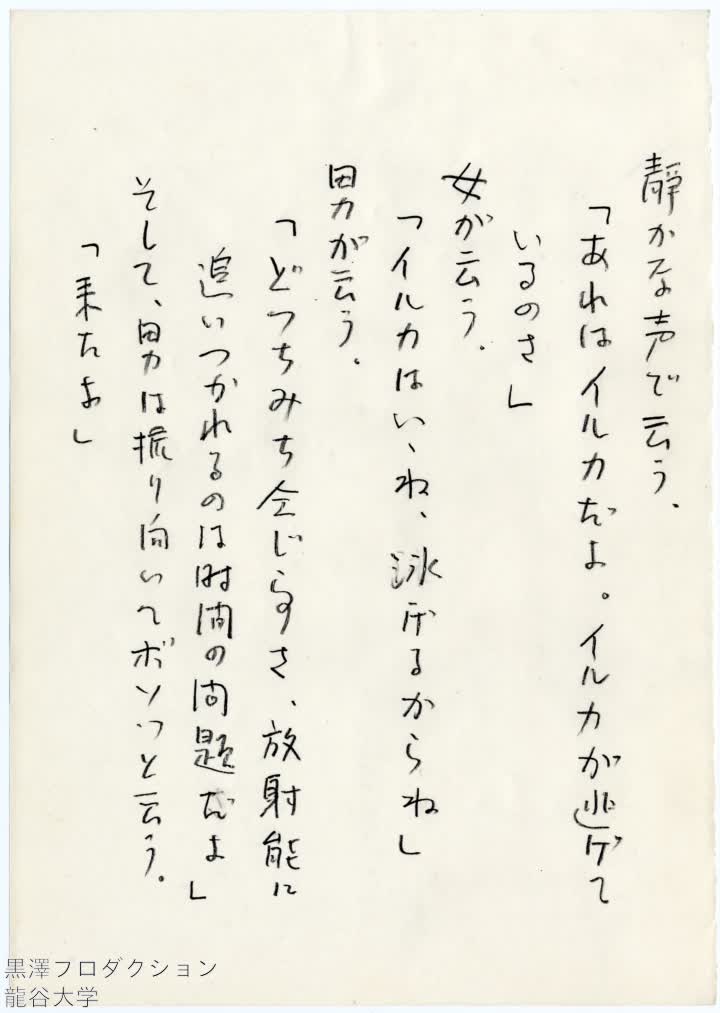 静かな声で云う、
「あれはイルカだよ。イルカが逃げて
いるのさ」
女が云う、
「イルカはいゝね、泳げるからね」
男が云う、
「どつちみち同じ事さ、放射能に
追いつかれるのは时间の问題だよ」
そして、男は振り向いてボソッと云う。
「来たよ」
黒澤プロダクション
龍谷大学